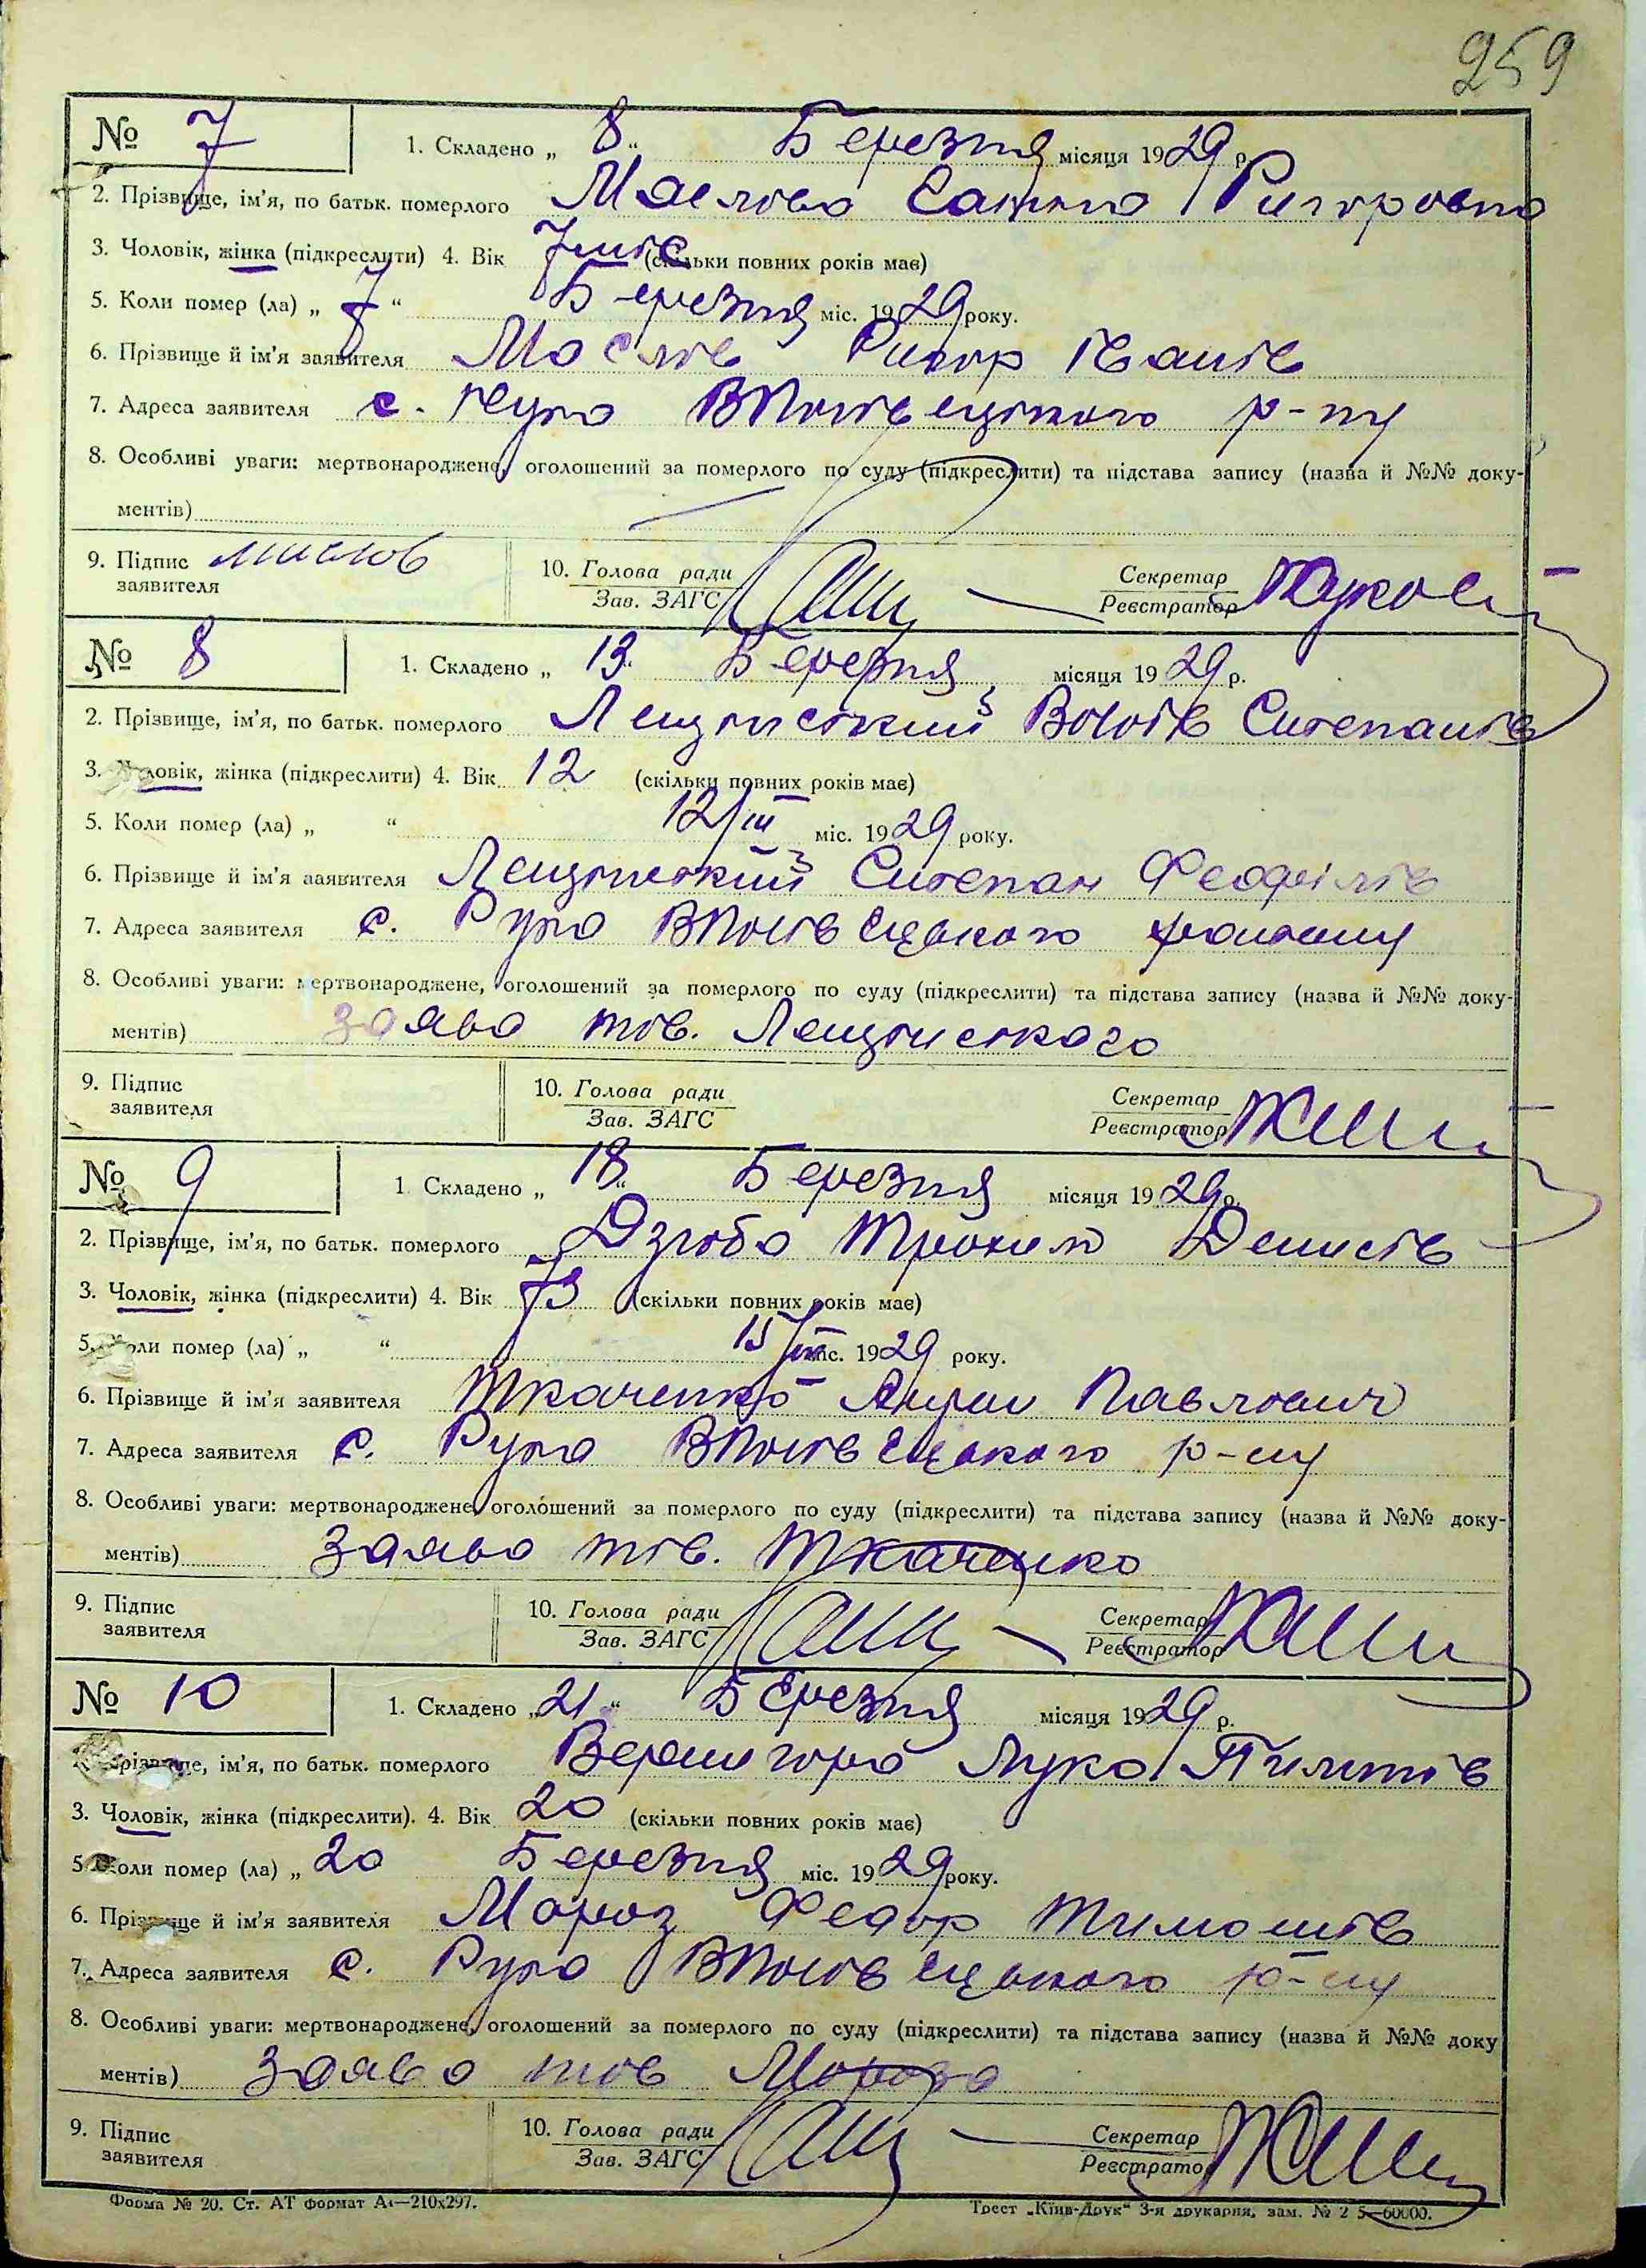 259
№ 7 1. Складено „ 8 “ Березня місяця 1929 р.
2. Прізвище, ім'я, по батьк. померлого Маслова Ригоровна
3. Чоловік, жінка (підкреслити) 4. Вік 7 міс (скільки повних років має)
5. Коли помер (ла) „ 7 “ Березня міс. 1929 року.
6. Прізвище й ім'я заявителя Маслів Ригор Іванів
7. Адреса заявителя с. Руда р-ну
8. Особливі уваги: мертвонароджене, оголошений за померлого по суду (підкреслити) та підстава запису (назва й №№ доку-
ментів)
9. Підпис заявителя Маслов 10. Голова ради Зав. ЗАГС Секретар Реєстратор
№ 8 1. Складено „ 13 “ Березня місяця 1929 р.
2. Прізвище, ім'я, по батьк. померлого Лещинський Степанів
3. Чоловік, жінка (підкреслити) 4. Вік 12 (скільки повних років має)
5. Коли помер (ла) „ “ 12/III міс. 1929 року.
6. Прізвище й ім'я заявителя Лещинський Степан Феофілів
7. Адреса заявителя с. Руда району
8. Особливі уваги: мертвонароджене, оголошений за померлого по суду (підкреслити) та підстава запису (назва й №№ доку-
ментів) заява тов. Лещинского
9. Підпис заявителя 10. Голова ради Зав. ЗАГС Секретар Реєстратор
№ 9 1. Складено „ 18 “ Березня місяця 1929 р.
2. Прізвище, ім'я, по батьк. померлого Дзюба Трохим Денисів
3. Чоловік, жінка (підкреслити) 4. Вік 73 (скільки повних років має)
5. Коли помер (ла) „ “ 15/III міс. 1929 року.
6. Прізвище й ім'я заявителя Ткаченко Андрій Павлович
7. Адреса заявителя с. Руда р-ну
8. Особливі уваги: мертвонароджене, оголошений за померлого по суду (підкреслити) та підстава запису (назва й №№ доку-
ментів) Заява тов. Ткаченко
9. Підпис заявителя 10. Голова ради Зав. ЗАГС Секретар Реєстратор
№ 10 1. Складено „ 21 “ Березня місяця 1929 р.
2. Прізвище, ім'я, по батьк. померлого Вернигора Лука Пилипів
3. Чоловік, жінка (підкреслити). 4. Вік 20 (скільки повних років має)
5. Коли помер (ла) „ 20 Березня міс. 1929 року.
6. Прізвище й ім'я заявителя Мороз Федор Тимошів
7. Адреса заявителя с. Руда р-ну
8. Особливі уваги: мертвонароджене, оголошений за померлого по суду (підкреслити) та підстава запису (назва й №№ доку
ментів) Заява тов Мороза
9. Підпис заявителя 10. Голова ради Зав. ЗАГС Секретар Реєстратор
Форма № 20. Ст. АТ формат А4—210х297. Трест „Київ-Друк“ 3-я друкарня, зам. № 2 5—60000.